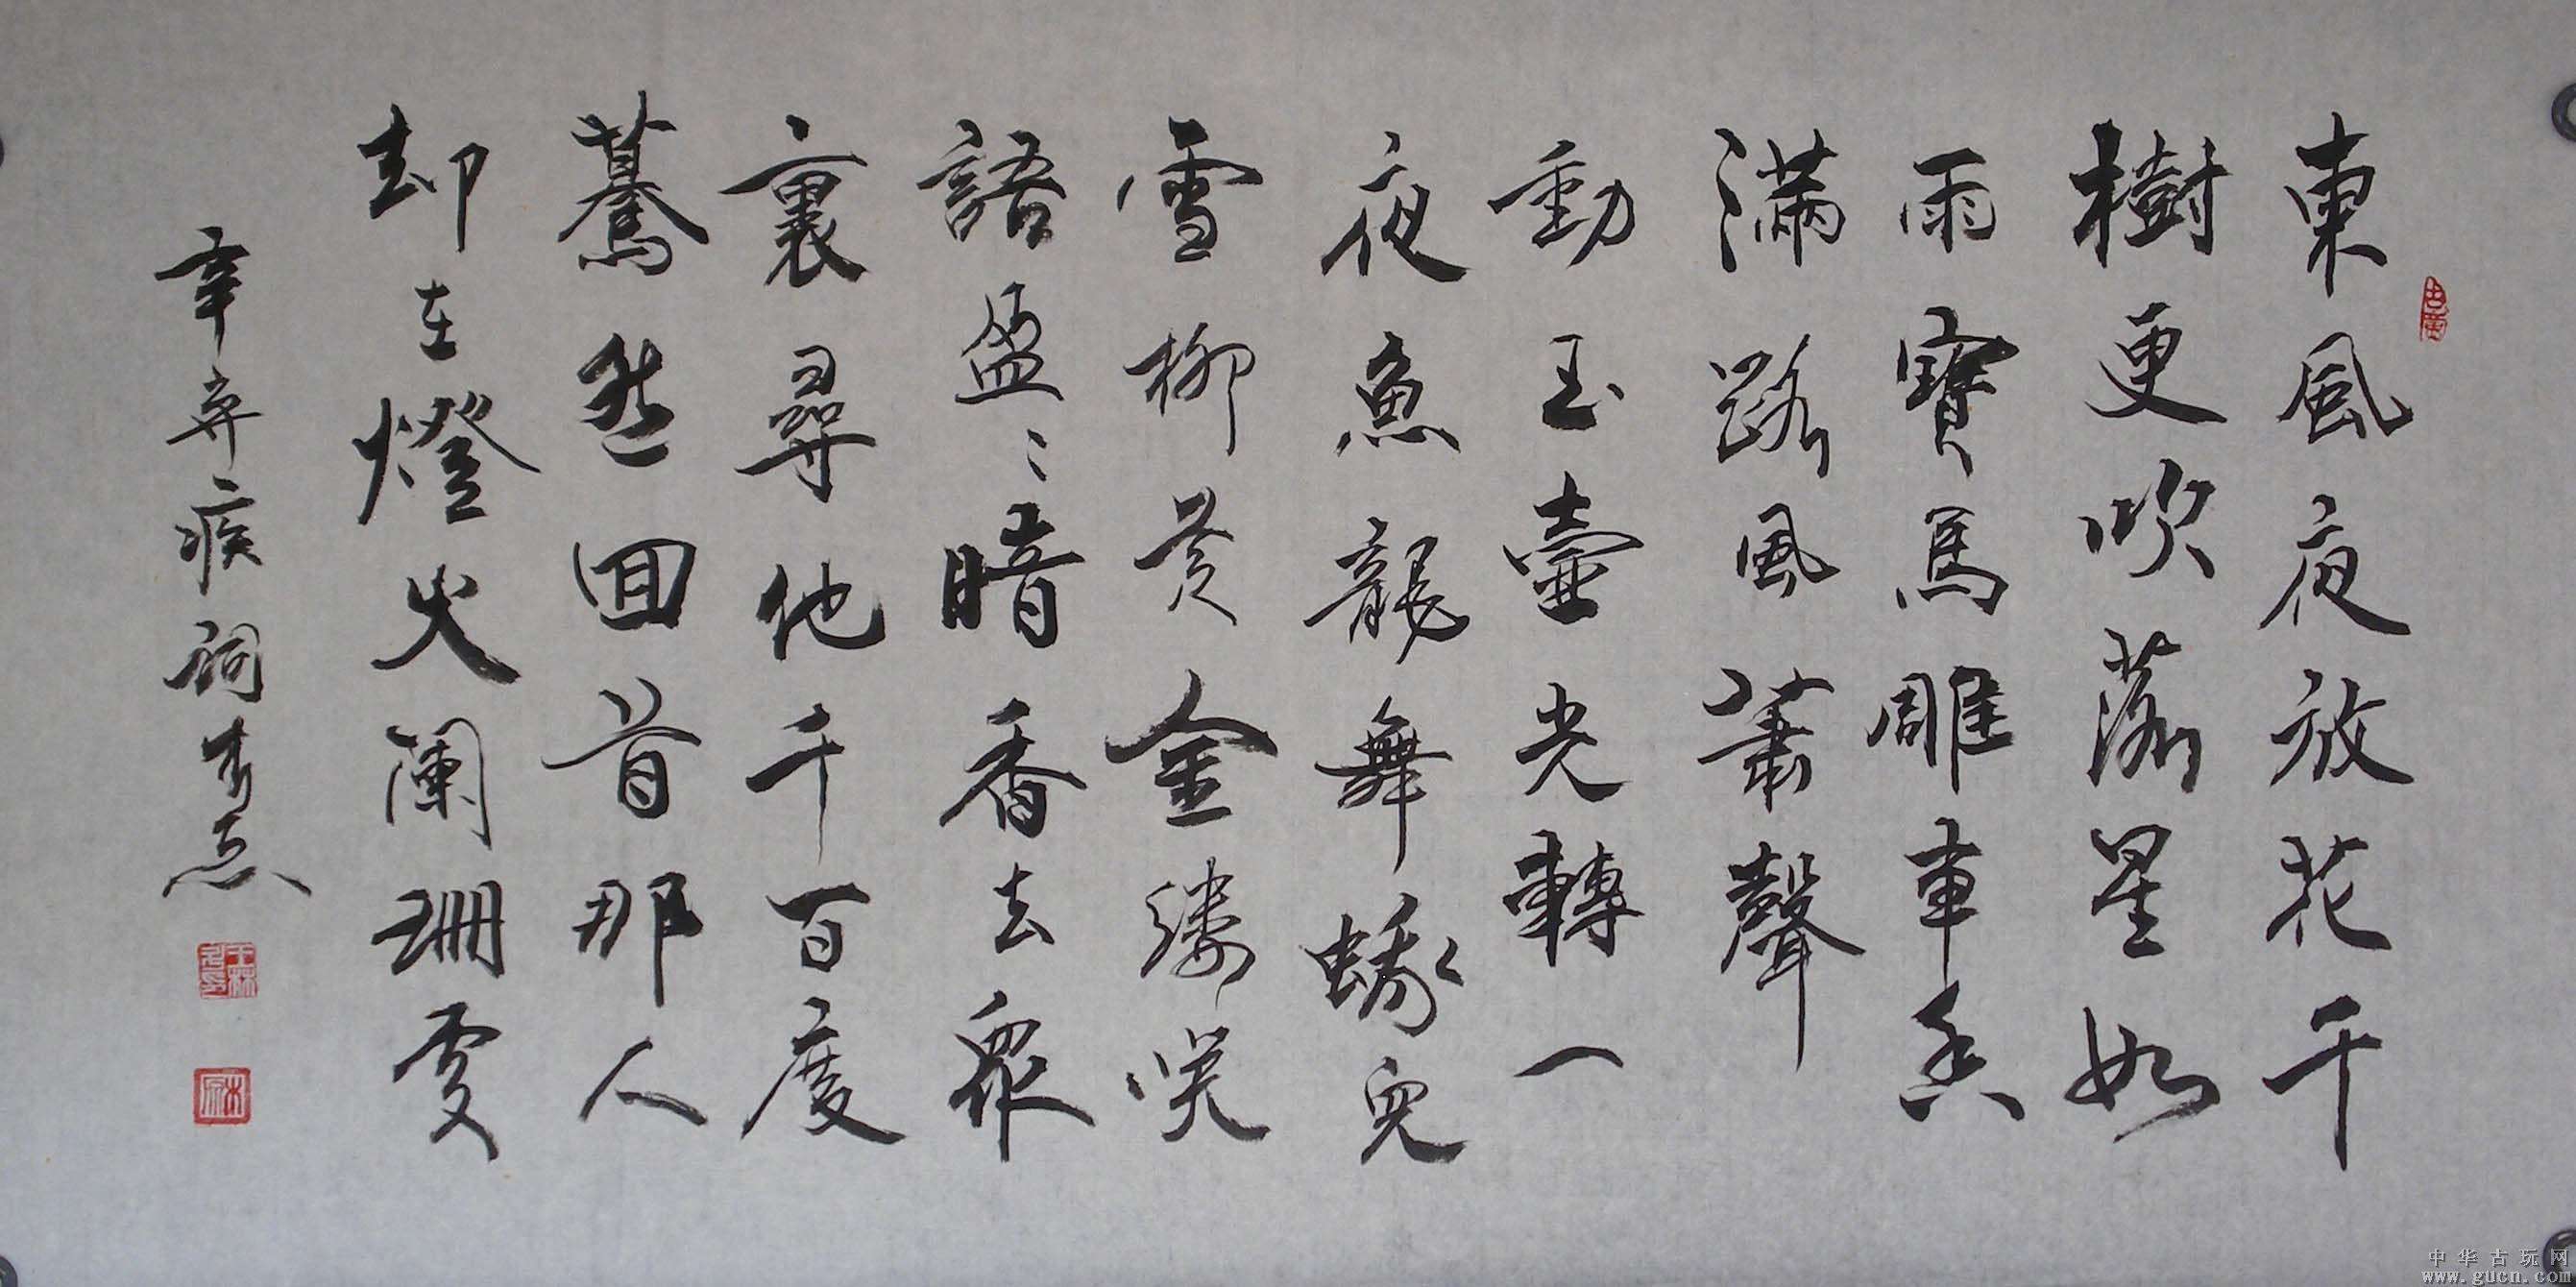 東風夜放花千
樹更吹落星如
雨寶馬雕車香
滿路風簫聲
動玉壺光轉一
夜魚龍舞蛾兒
雪柳黄金縷笑
語盈〻暗香去眾
裏尋他千百度
驀然回首那人
却在燈火闌珊處
辛弃疾詞
中华古玩网
www.gucn.com